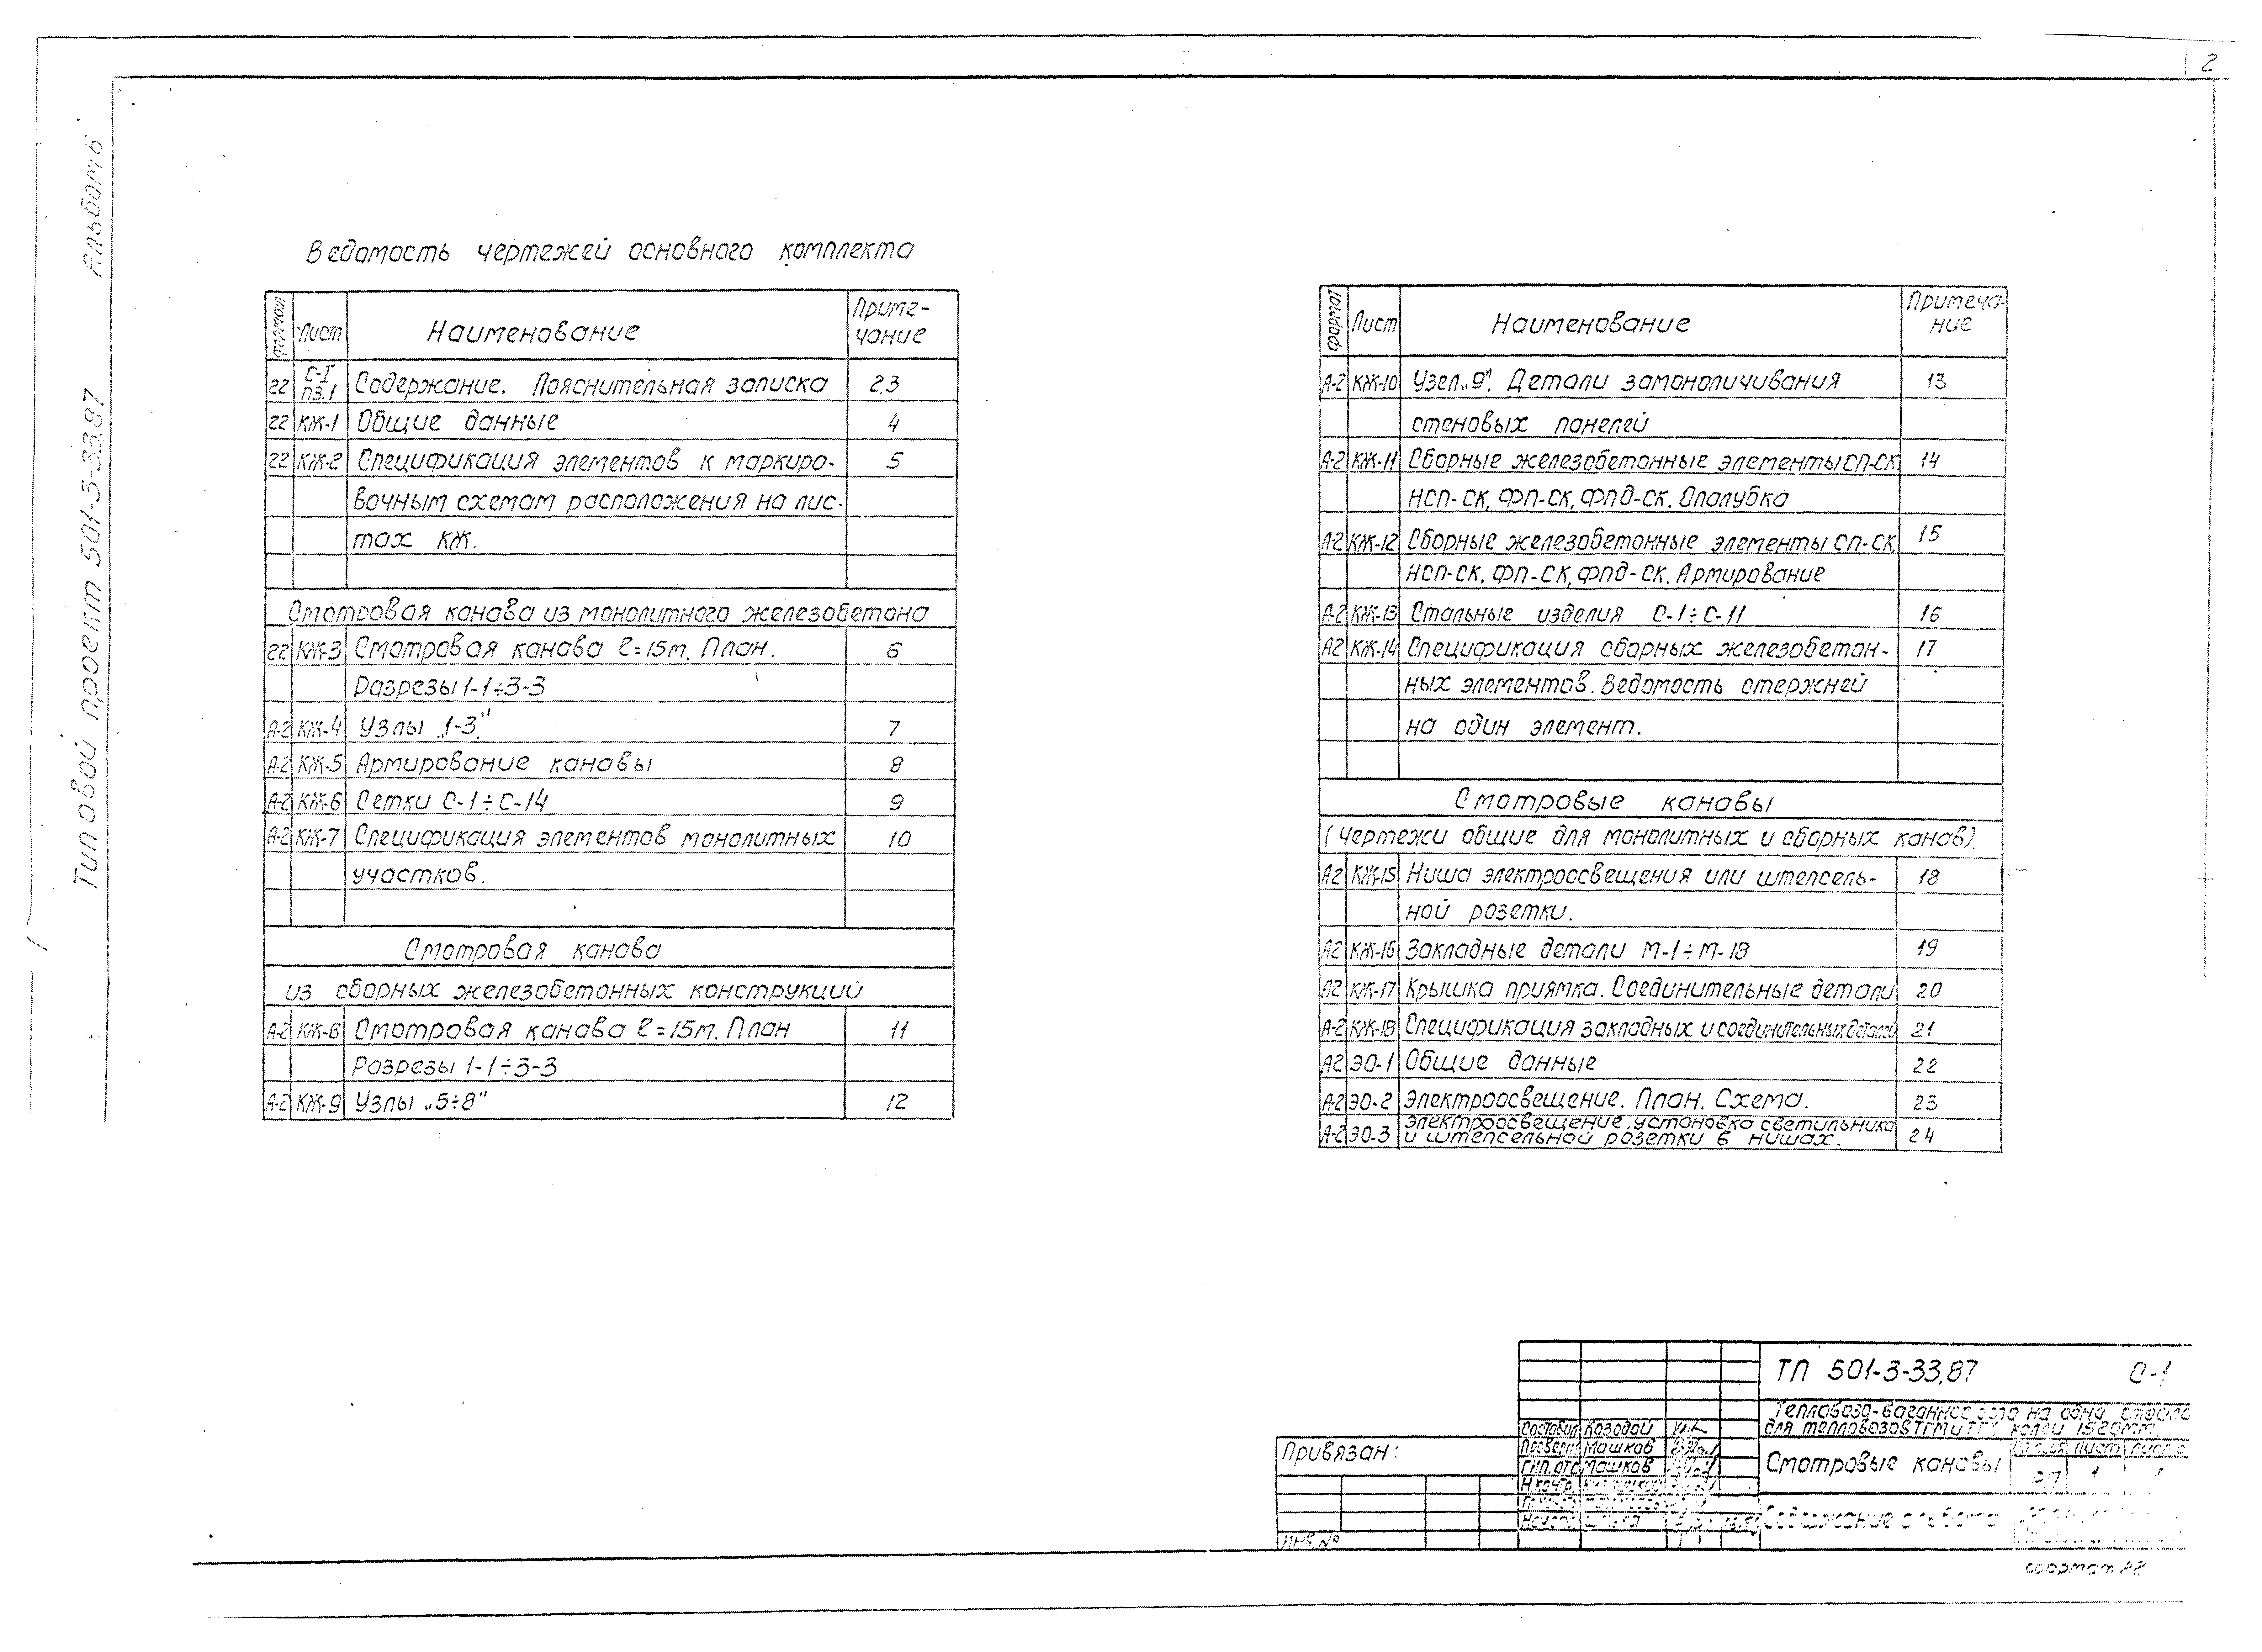 2
Типовой проект 501-3-33.87 Альбом 6
Ведомость чертежей основного комплекта
Формат Лист Наименование Приме-
чание
22 С-1 Содержание. Пояснительная записка 2,3
ПЗ.1
22 КЖ-1 Общие данные 4
22 КЖ-2 Спецификация элементов к маркиро- 5
вочным схемам расположения на лис-
тах КЖ.
Смотровая канава из монолитного железобетона
22 КЖ-3 Смотровая канава ℓ=15м. План. 6
Разрезы 1-1÷3-3
А-2 КЖ-4 Узлы „1-3" 7
А-2 КЖ-5 Армирование канавы 8
А-2 КЖ-6 Сетки С-1÷С-14 9
А-2 КЖ-7 Спецификация элементов монолитных 10
участков.
Смотровая канава
из сборных железобетонных конструкций
А-2 КЖ-8 Смотровая канава ℓ=15м. План 11
Разрезы 1-1÷3-3
А-2 КЖ-9 Узлы „5÷8" 12
Формат Лист Наименование Примеча-
ние
А-2 КЖ-10 Узел „9". Детали замоноличивания 13
стеновых панелей
А-2 КЖ-11 Сборные железобетонные элементы СП-СК 14
НСП-СК, ФП-СК, ФПД-СК. Опалубка
А-2 КЖ-12 Сборные железобетонные элементы СП-СК, 15
НСП-СК, ФП-СК, ФПД-СК. Армирование
А-2 КЖ-13 Стальные изделия С-1÷С-11 16
А2 КЖ-14 Спецификация сборных железобетон- 17
ных элементов. Ведомость стержней
на один элемент.
Смотровые канавы
(Чертежи общие для монолитных и сборных канав).
А2 КЖ-15 Ниша электроосвещения или штепсель- 18
ной розетки.
А2 КЖ-16 Закладные детали М-1÷М-18 19
А2 КЖ-17 Крышка приямка. Соединительные детали 20
А-2 КЖ-18 Спецификация закладных и соединительных деталей 21
А2 ЭО-1 Общие данные 22
А-2 ЭО-2 Электроосвещение. План. Схема. 23
А-2 ЭО-3 Электроосвещение, установка светильника 24
и штепсельной розетки в нишах.
ТП 501-3-33.87 С-1
на одно
для тепловозов ТГМ и колеи 1520мм.
Составил Козодой
Проверил Машков
Машков
Н.контр.
Привязан:
Смотровые канавы
Лист
РП 1
Содержание альбома
Инв. №
Формат 22